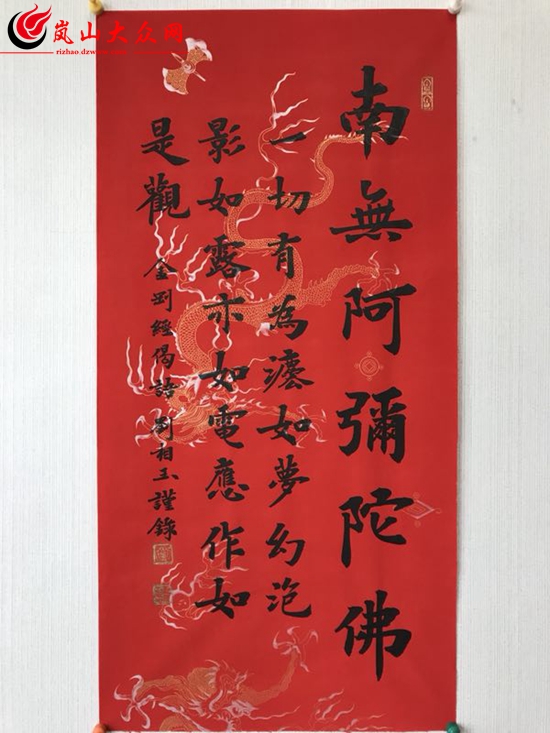 岚山大众网
rizhao.dzw
南無阿彌陀佛
一切有為灋如夢幻泡
影如露亦如電應作如
是觀 金剛經偈語 劉相玉謹錄